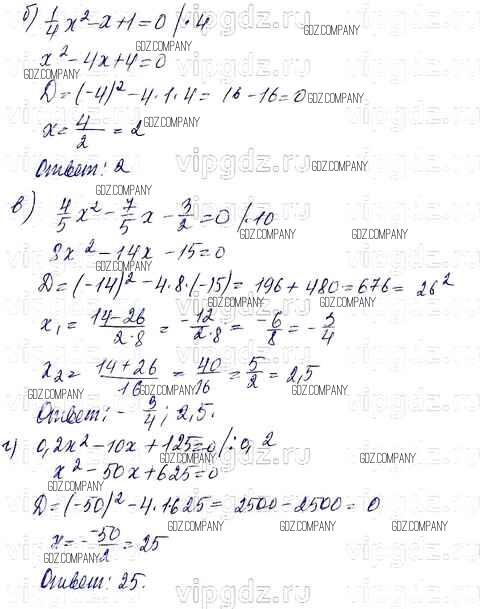 б) 1/4 x² - x + 1 = 0 /·4
x² - 4x + 4 = 0
D = (-4)² - 4·1·4 = 16 - 16 = 0
x = 4/2 = 2
Ответ: 2
в) 4/5 x² - 7/5 x - 3/2 = 0 /·10
8x² - 14x - 15 = 0
D = (-14)² - 4·8·(-15) = 196 + 480 = 676 = 26²
x₁ = (14-26)/(2·8) = -12/(2·8) = -6/8 = -3/4
x₂ = (14+26)/16 = 40/16 = 5/2 = 2,5
Ответ: -3/4; 2,5.
г) 0,2x² - 10x + 125 = 0 /:0,2
x² - 50x + 625 = 0
D = (-50)² - 4·1625 = 2500 - 2500 = 0
x = - -50/2 = 25
Ответ: 25.